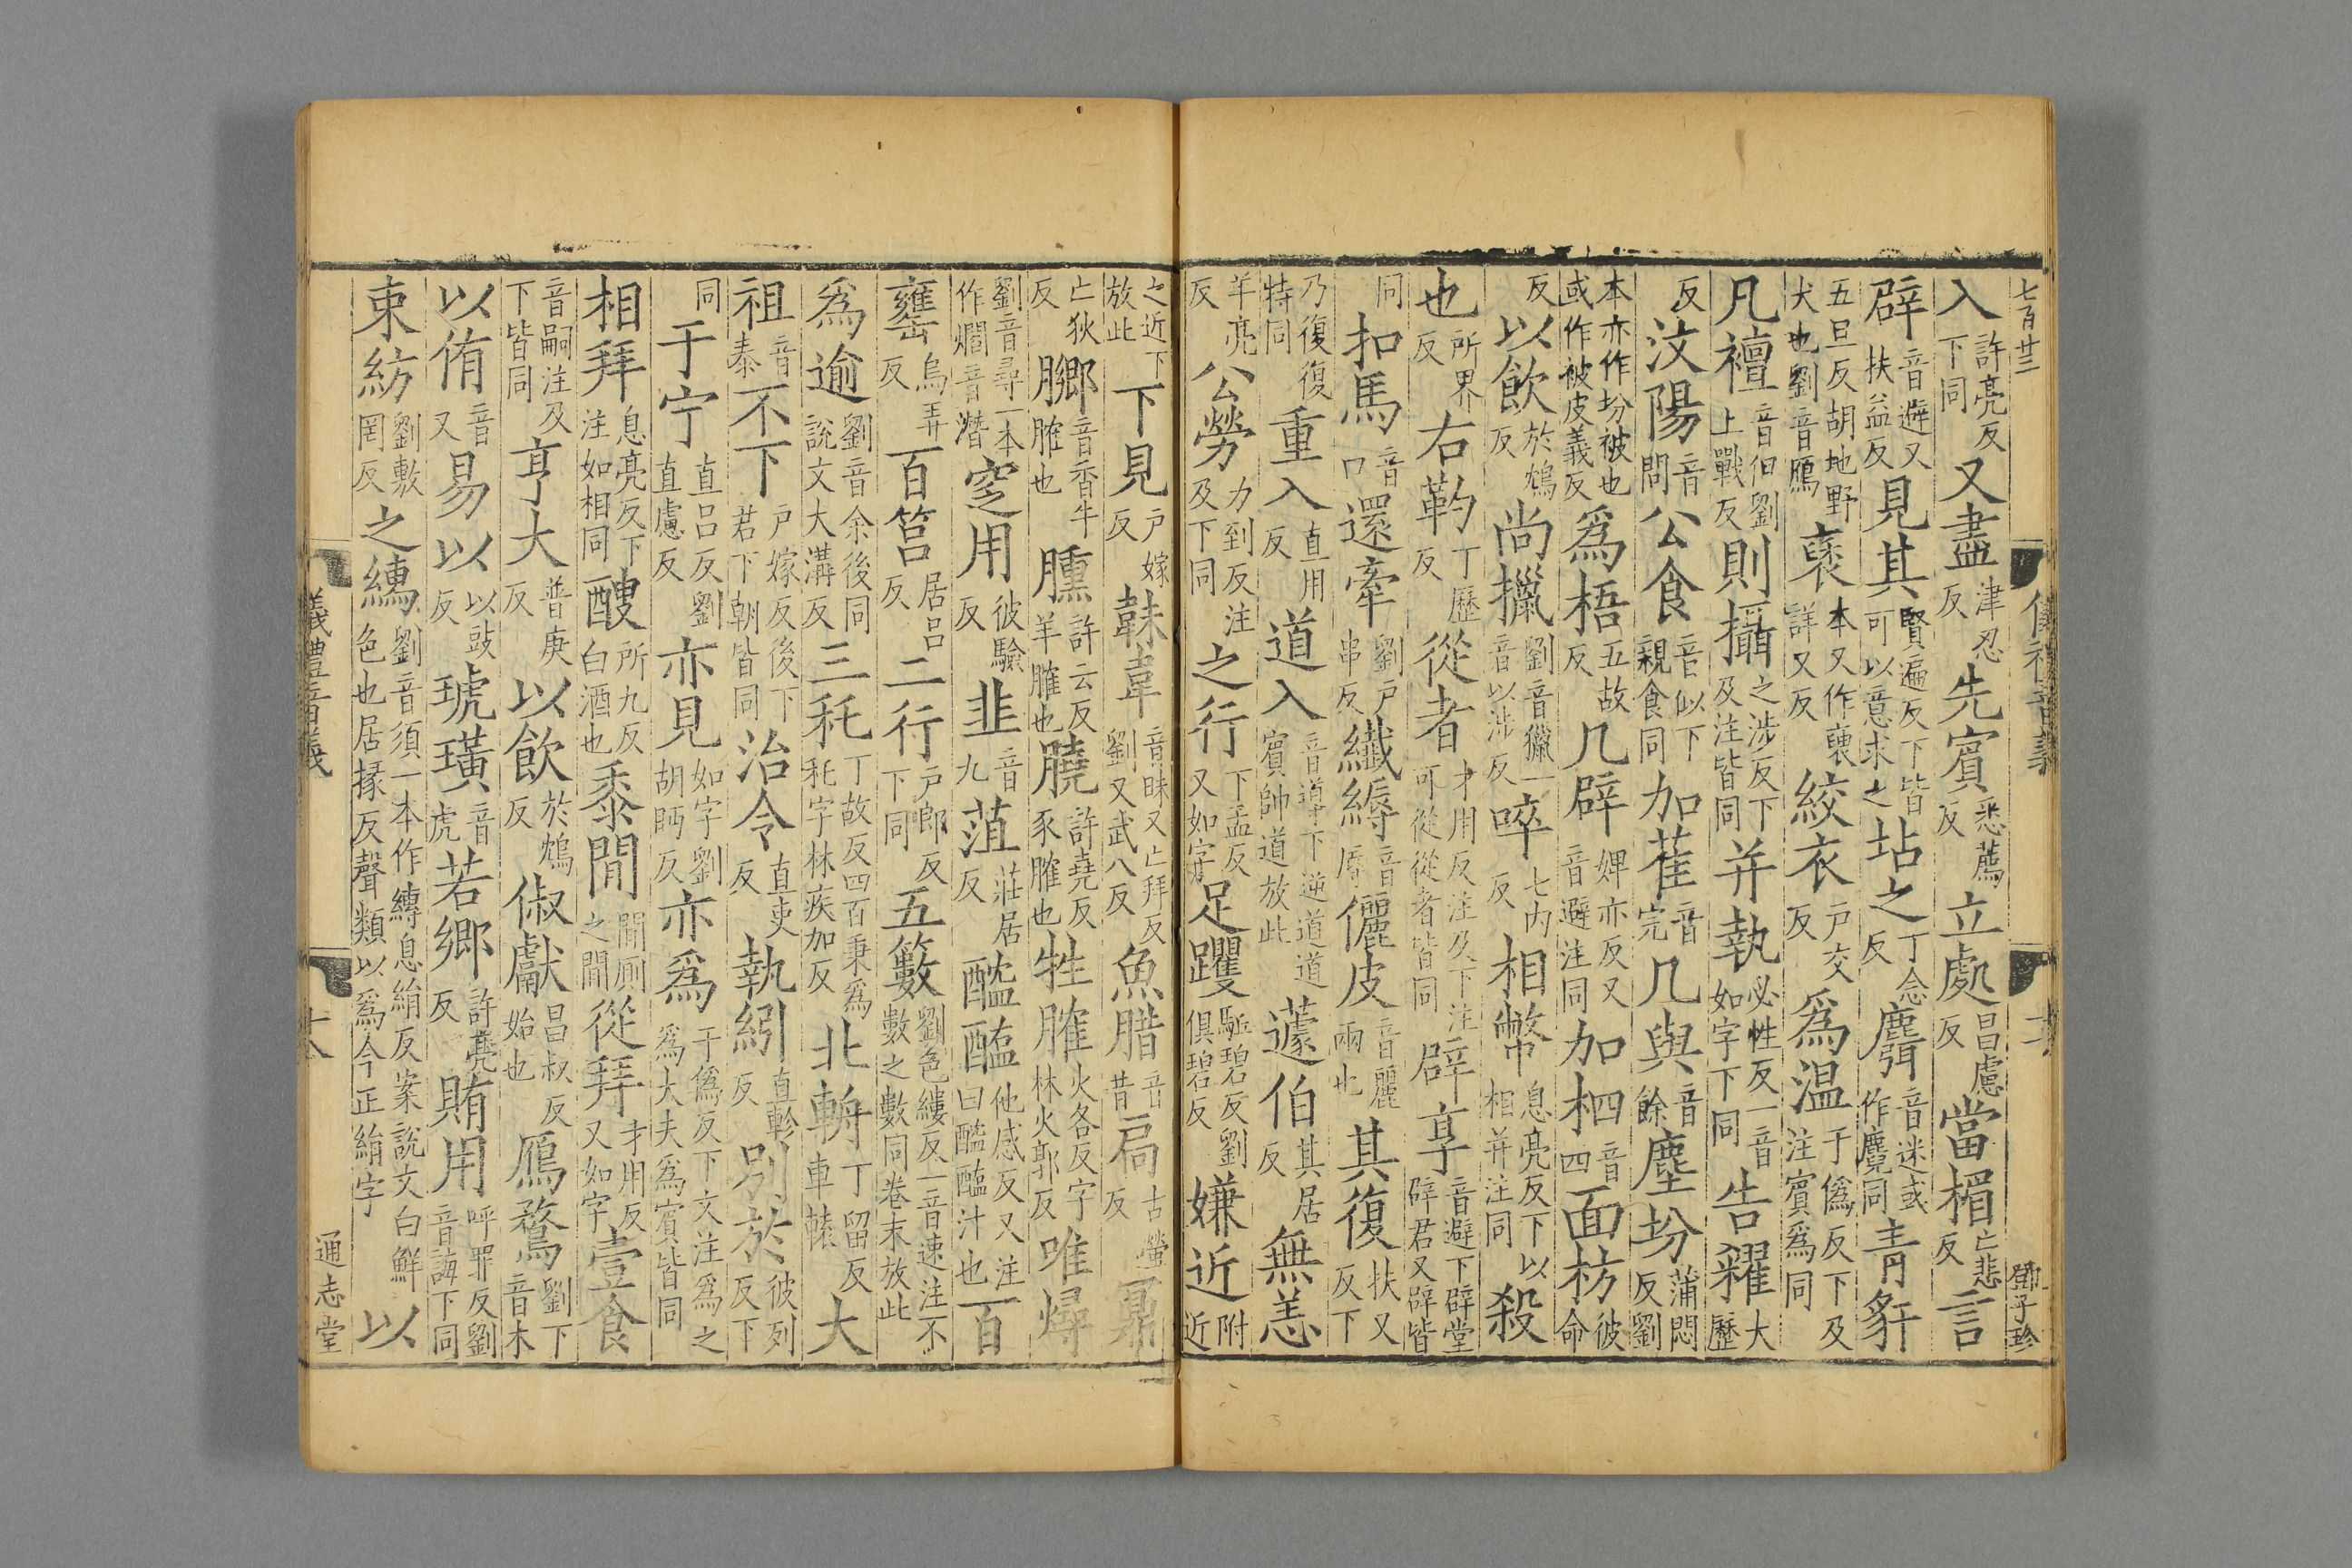 七百廿三 儀禮音義 鄧子珍
入許亮反下同又盡津忍反先賓悉薦反立處昌慮反當楣亡悲反言
辟音避又扶益反見其賢遍反下皆可以意求之坫之丁念反麛音迷或作麑同青豻
五旦反胡地野犬也劉音鴈褎本又作褏詳又反絞衣戶交反爲温于僞反下及注賓爲同
凡襢音但劉上戰反則攝之涉反下及注皆同并執必性反一音如字下同告糴大歷
反汶陽音問公食音似下親食同加萑音完几與音餘塵坋蒲悶反劉
本亦作坋被也或作被皮義反爲梧五故反几辟婢亦反又音避注同加柶音四面枋彼命
反以飲於鴆反尚擸劉音獵一音以涉反啐七内反相幣息亮反下以相并注同殺
也所界反右靮丁歷反從者才用反注及下注可從從者皆同辟享音避下辟堂辟君又辟皆
同扣馬音口還牽劉戶串反纖縟音辱儷皮音麗兩也其復扶又反下
乃復復特同重入直用反道入音導下逆道道賓帥道放此蘧伯其居反無恙
羊亮反公勞力到反注及下同之行下孟反又如字足躩駈碧反劉俱碧反嫌近附近
之近下放此下見戶嫁反韎韋音昧又亡拜反劉又武八反魚腊音昔扃古螢反鼏
亡狄反膷音香牛臛也臐許云反羊臛也膮許堯反豕臛也牲臛火各反字林火郭反唯燖
劉音尋一本作爓音潛窆用彼驗反韭音九菹莊居反醓醢他感反又注曰醓醢汁也百
罋烏弄反百筥居呂反二行戶郎反下同五籔劉色縷反一音速注不數之數同卷末放此
爲逾劉音余後同說文大溝反三秅丁故反四百秉爲秅字林疾加反北輈丁留反車轅大
祖音泰不下戶嫁反後下君下朝皆同治令直吏反執紖直軫反別於彼列反下
同于宁直呂反劉直慮反亦見如字劉胡眄反亦爲于僞反下文注爲之爲大夫爲賓皆同
相拜息亮反下注如相同醙所九反白酒也黍閒閒厠之閒從拜才用反又如字壹食
音嗣注及下皆同亨大普庚反以飲於鴆反俶獻昌叔反始也鴈鶩劉下音木
以侑音又易以以豉反琥璜音虎若鄉許亮反賄用呼罪反劉音誨下同
束紡劉敷罔反之縳劉音須一本作縳息絹反案說文白鮮色也居掾反聲類以爲今正絹字以
儀禮音義 十八 通志堂